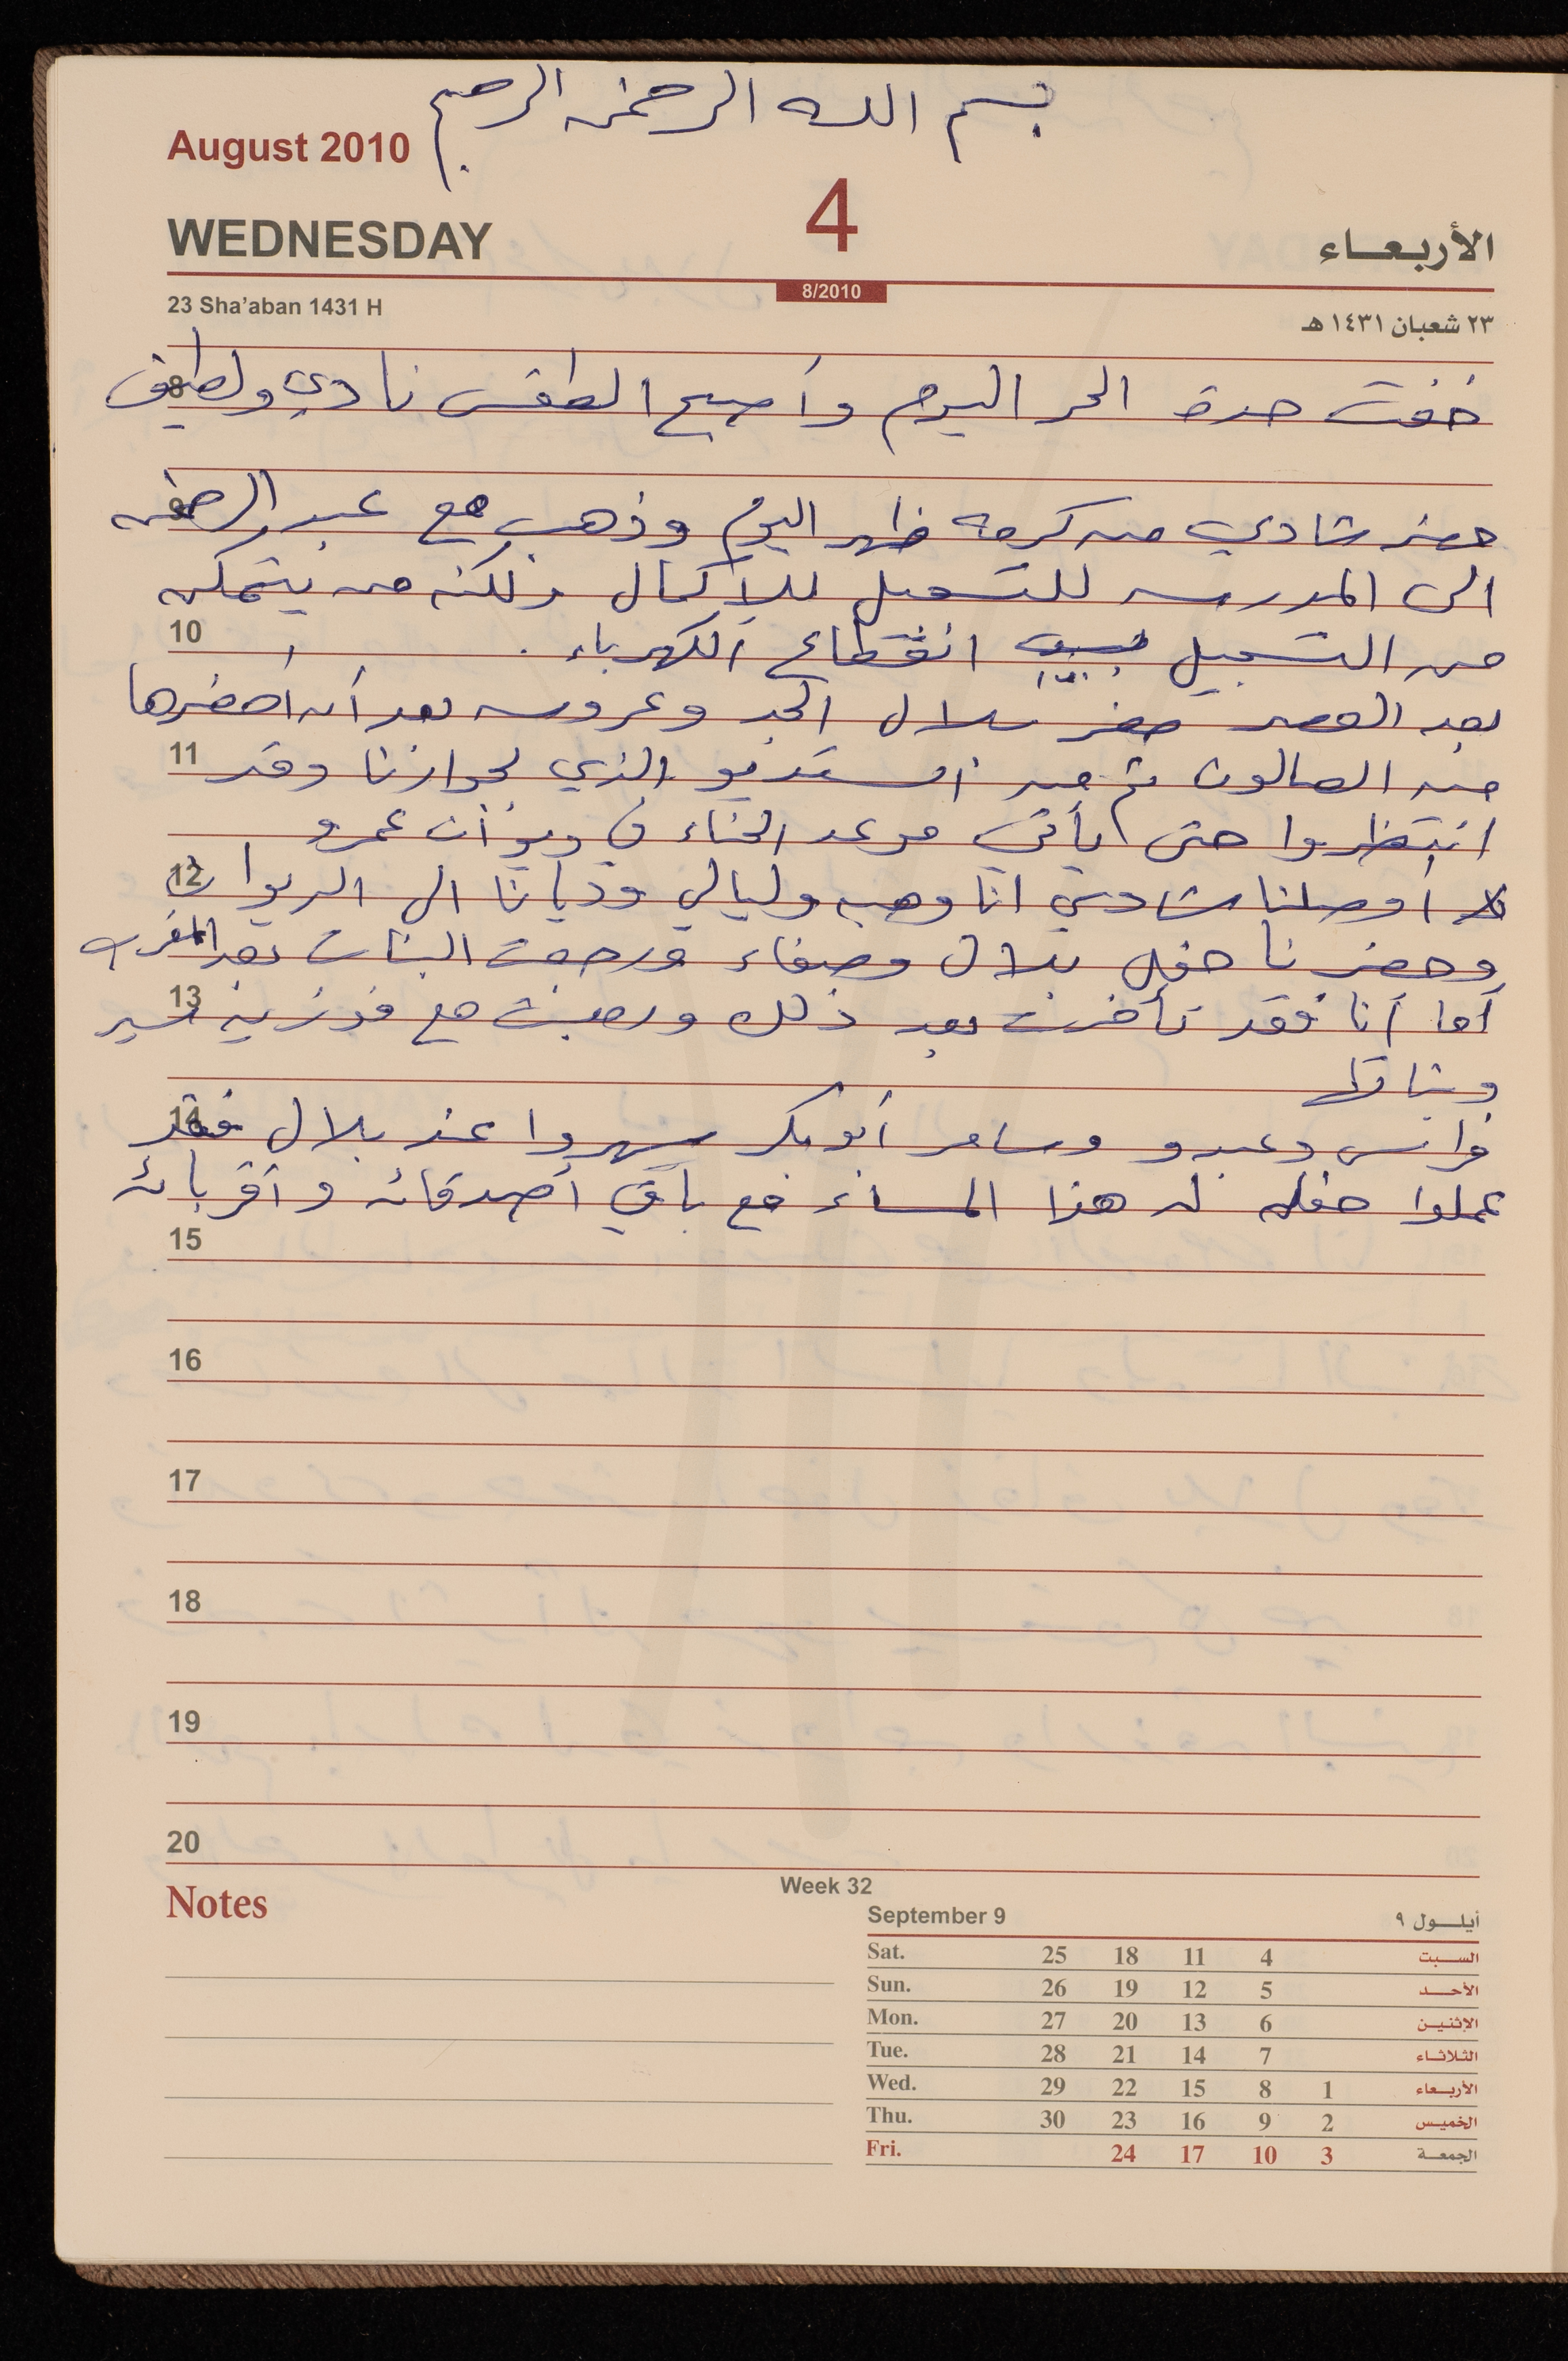 بسم الله الرحمن الرحيم
August 2010
4
WEDNESDAY
الأربعاء
8/2010
23 Sha'aban 1431 H
٢٣ شعبان ١٤٣١ هـ
خفت حدة الحر اليوم وأصبح الطقس نادي ولطيف
8
حضر شادي من كرمه ظهر اليوم وذهب مع عبد الرحمن
9
الى المدرسه للتسجيل للأكمال ولكنه من يتمكن
من التسجيل بسبب انقطاع الكهرباء .
10
بعد العصر حضر بلال الجد وعروسه بعد أن أحضرها
من الصالون ثم من الستديو الذي بجوارنا وقد
11
انتظروا حتى يأتي موعد الحناء في ديوان عمرو
أوصلنا شادي انا وهبه وليالي وديانا الى الديوان
12
وحضرنا حفل بلال وصفاء ورجعت البنات بعد المغرب
أما أنا فقد تأخرت بعد ذلك ورجعت مع فوزيه
13
فراس وعبدو وسامر أبو بكر سهروا عند بلال فقد
14
عملوا حفله له هذا المساء مع باقي أصدقائه وأقربائه
15
16
17
18
19
20
Notes
Week 32
September 9 أيلول ٩
Sat. 25 18 11 4 السبت
Sun. 26 19 12 5 الأحد
Mon. 27 20 13 6 الإثنين
Tue. 28 21 14 7 الثلاثاء
Wed. 29 22 15 8 1 الأربعاء
Thu. 30 23 16 9 2 الخميس
Fri. 24 17 10 3 الجمعة